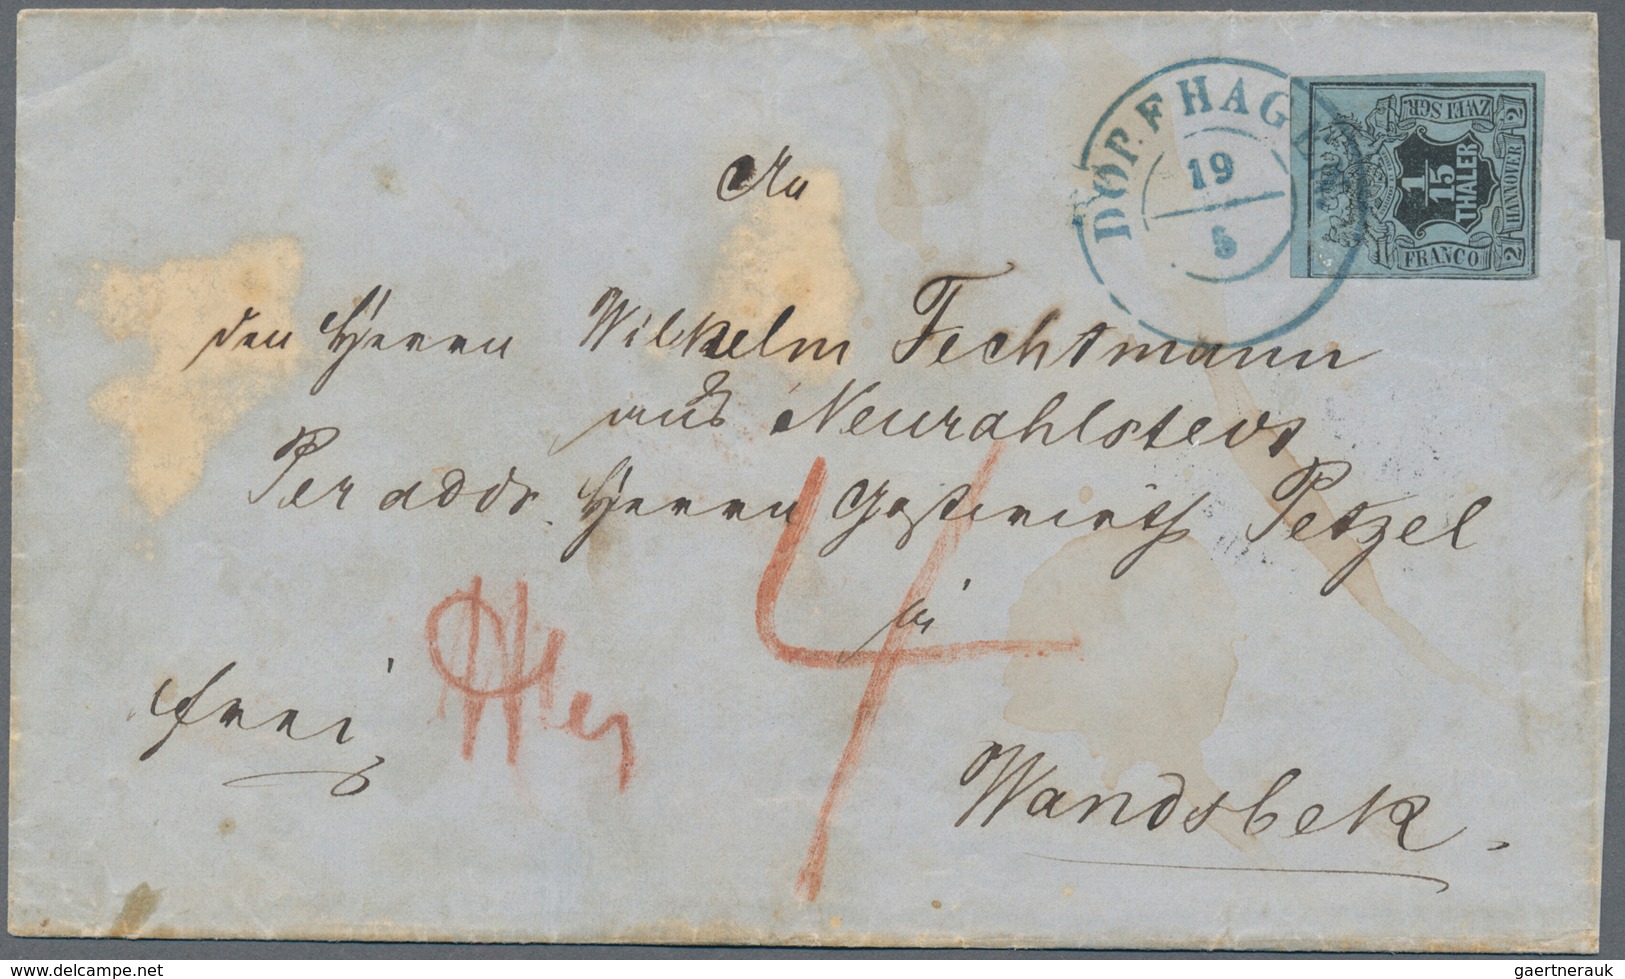 DORFHAGEN
19
5
ZWEI SGR.
1
15
THALER
HANOVER
FRANCO
2
2
An
den Herrn Wilhelm Fechtmann
aus Neurahlstedt
Per addr. Herrn Gastwirth Petzel
in
4
frei
Wandsbek.
www.delcampe.net
gaertnerauk